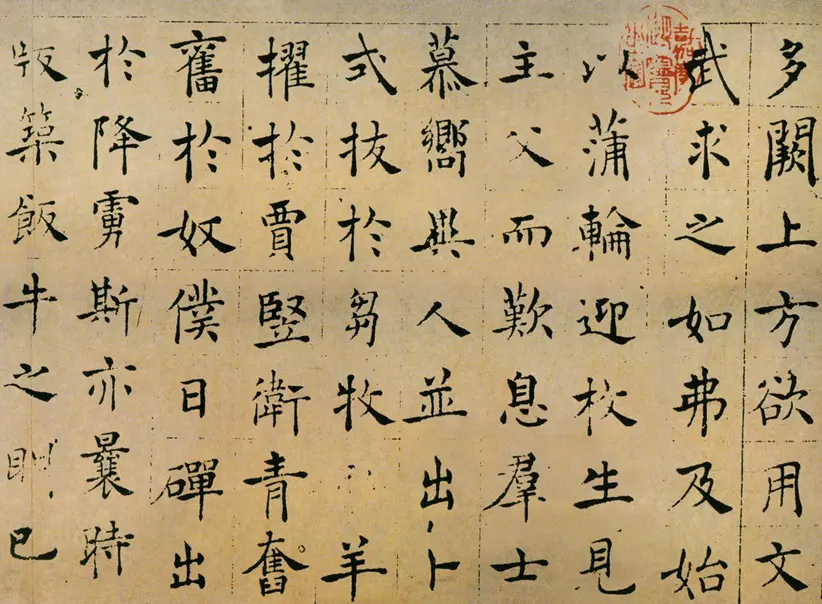 多闕上方欲用文
武求之如弗及始
以蒲輪迎枚生見
主父而歎息羣士
慕嚮異人並出卜
式拔於芻牧羊
擢於賈豎衛青奮
舊於奴僕日磾出
於降虜斯亦曩時
版築飯牛之明已